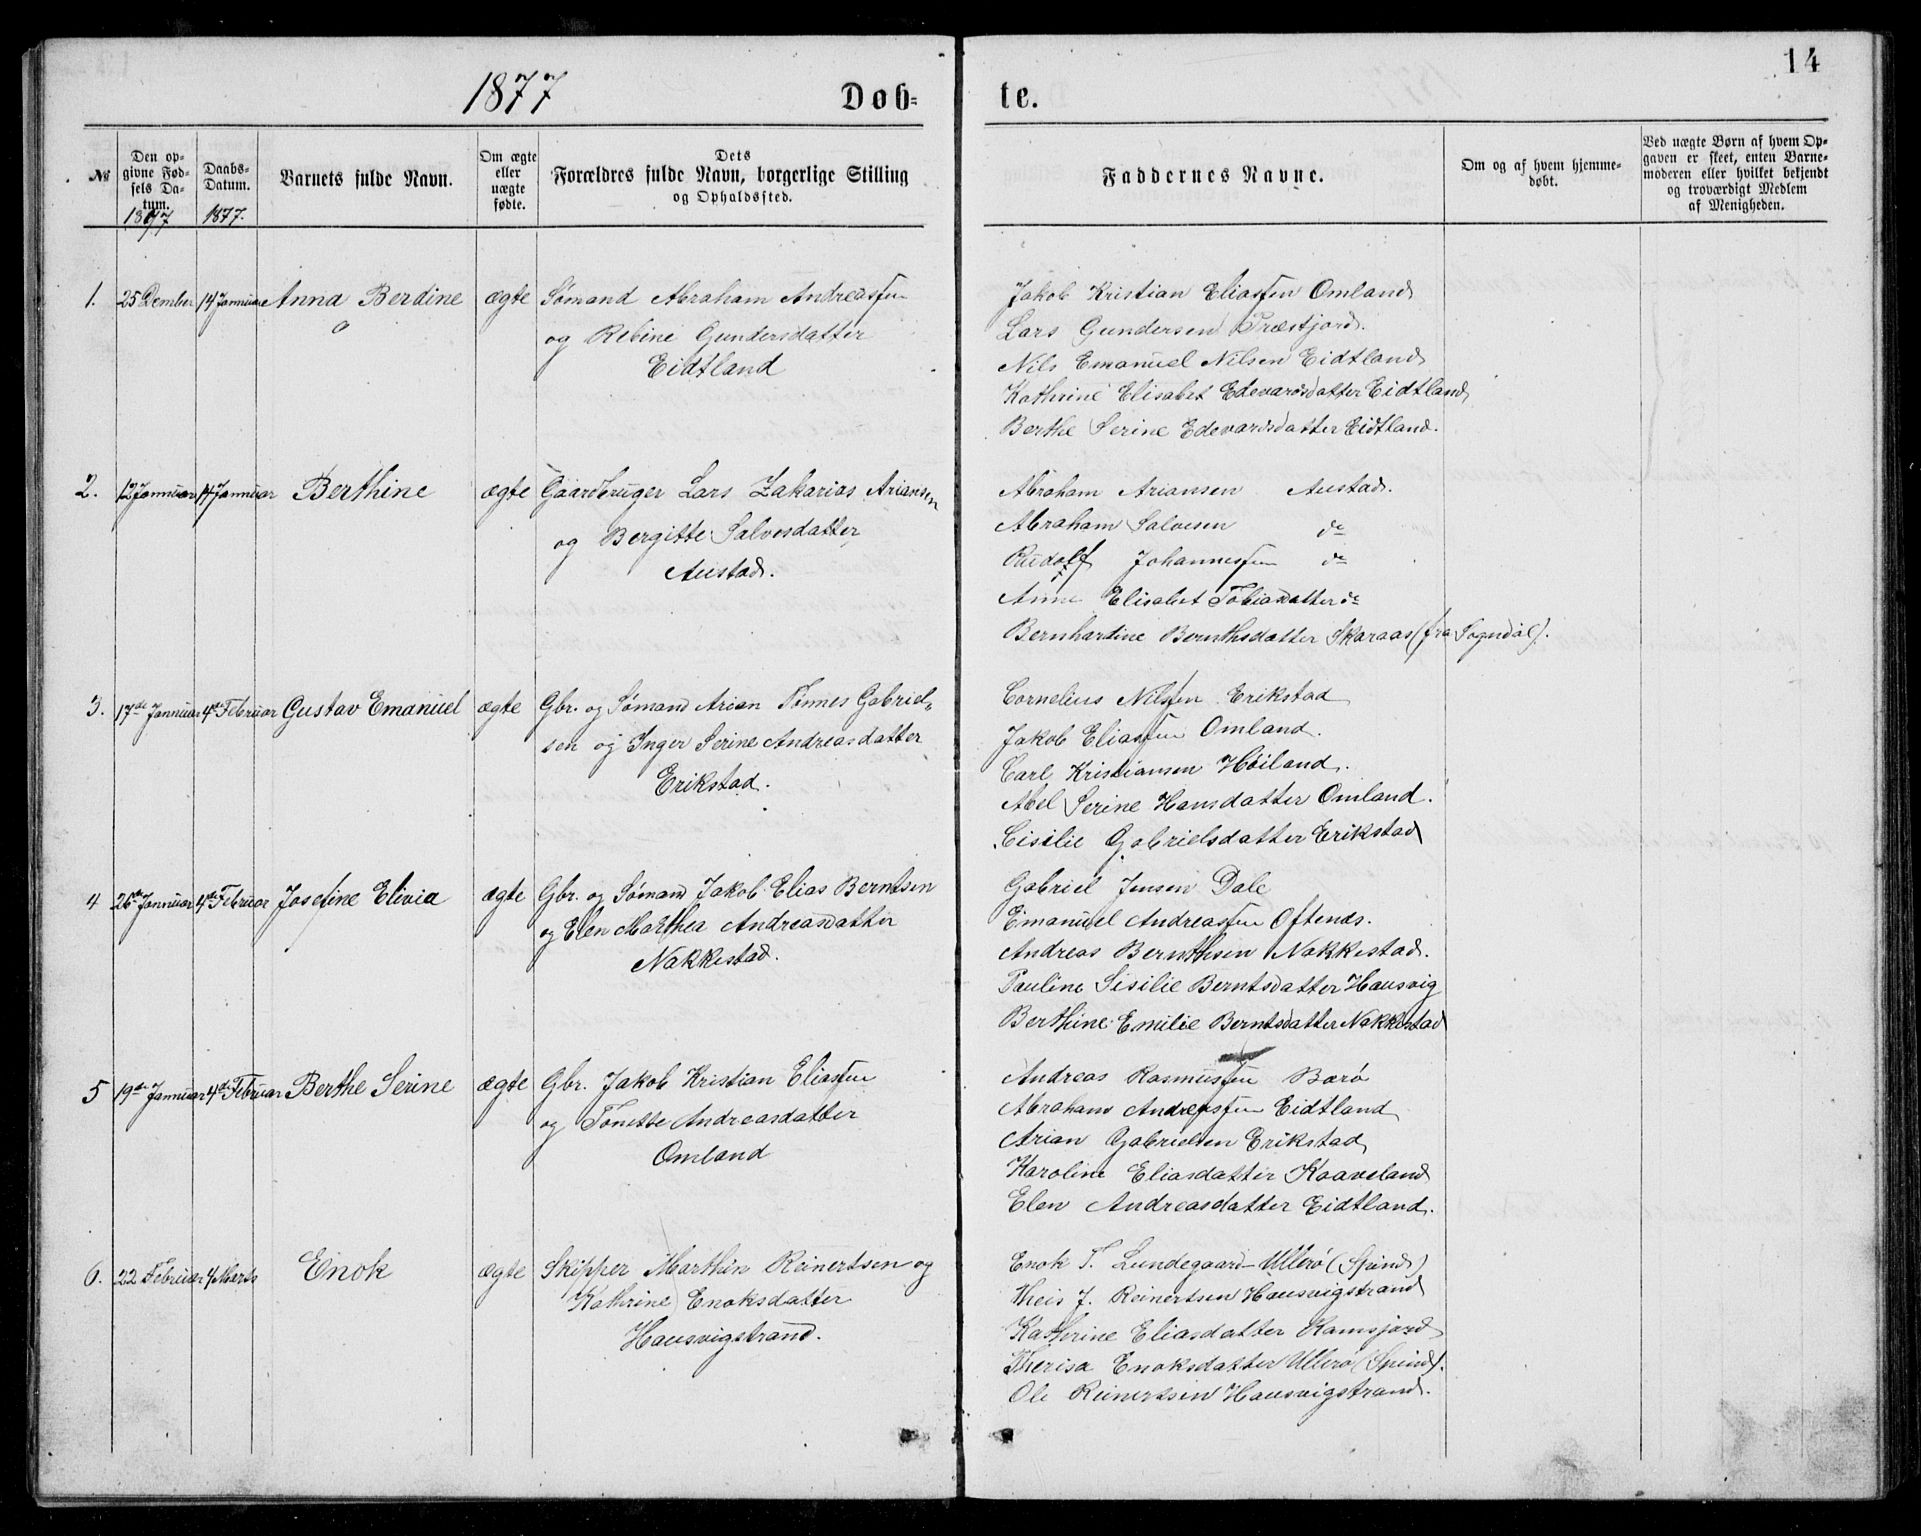 14
1877
Døb-
te.
№
Den op-
givne Fød-
sels Da-
tum.
1877
Daabs-
Datum.
1877.
Barnets fulde Navn.
Om ægte
eller
uægte
fødte.
Dets
Forældres fulde Navn, borgerlige Stilling
og Opholdssted.
Faddernes Navne.
Om og af hvem hjemme-
døbt.
Ved uægte Børn af hvem Op-
gaven er skeet, enten Barne-
moderen eller hvilket bekjendt
og troværdigt Medlem
af Menigheden.
1. 25 Dember 14 Januar Anna Berdine ægte Sømand Abraham Andreassen
og Rebine Gundersdatter
Eidtland
Jakob Kristian Eliassen Omland
Lars Gundersen Præstjord.
Nils Emanuel Nilsen Eidtland
Kathrine Elisabet Edevardsdatter Eidtland
Berthe Serine Edevardsdatter Eidtland.
2. 12 Januar 14 Januar Berthine ægte Gaardbruger Lars Zakarias Ariansen
og Bergitte Salvesdatter
Austad.
Abraham Ariansen Austad.
Abraham Salvesen do
Rudolf Johannessen do
Anne Elisabet Tobiasdatter do
Bernhardine Bernthsdatter Skaraas (fra Sogndal).
3. 17de Januar 4de Februar Gustav Emanuel ægte Gbr. og Sømand Arian Tønnes Gabriel-
sen og Inger Serine Andreasdatter
Erikstad.
Cornelius Nilssen Erikstad
Jakob Eliassen Omland.
Carl Kristiansen Høiland.
Abel Serine Hansdatter Omland.
Cisilie Gabrielsdatter Erikstad
4 26de Januar 4de Februar Josefine Elivia ægte Gbr. og Sømand Jakob Elias Berntsen
og Elen Marthea Andreasdatter
Nakkestad.
Gabriel Jensen Dale
Emanuel Andreassen Oftenæs.
Andreas Bernthsen Nakkestad.
Pauline Sisilie Berntsdatter Hausvig
Berthine Emilie Berntsdatter Nakkestad
5 19de Januar 4de Februar Berthe Serine ægte Gbr. Jakob Kristian Eliassen
og Tonette Andreasdatter
Omland
Andreas Rasmussen Barø
Abraham Andreassen Eidtland
Arian Gabrielsen Erikstad
Karoline Eliasdatter Kaaveland
Elen Andreasdatter Eidtland.
6. 22 Februar 4 Marts Enok ægte Skipper Marthin Reinertsen og
Kathrine Enoksdatter
Hausvigstrand.
Enok T. Lundegaard Ullerø (Spind)
Theis J. Reinertsen Hausvigstrand
Katherine Eliasdatter Ramsjord
Therisa Enoksdatter Ullerø (Spind).
Ole Reinertsen Hausvigstrand.